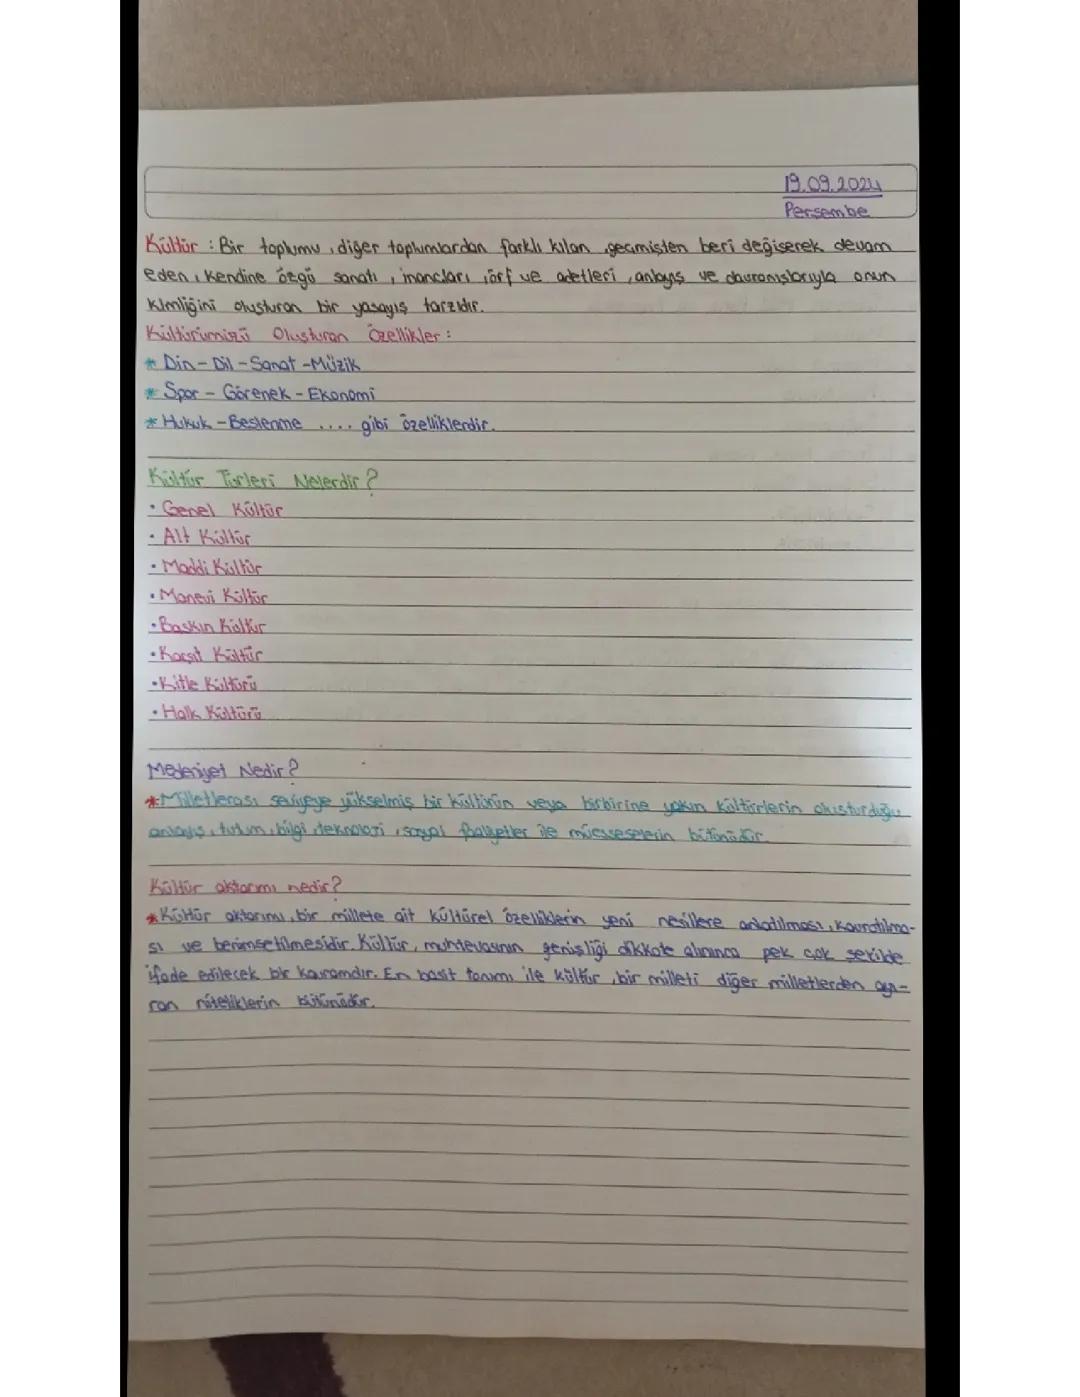 19.09.2024
Perşembe
Kültür : Bir toplumu, diğer toplumlardan farklı kılan, geçmişten beri değişerek devam
eden, kendine özgü sanatı, inançları, örf ve adetleri, anlayış ve davranışlarıyla onun
kimliğini oluşturan bir yaşayış tarzıdır.
Kültürümüzü Oluşturan Özellikler :
* Din - Dil - Sanat - Müzik
* Spor - Görenek - Ekonomi
* Hukuk - Beslenme .... gibi özelliklerdir.
Kültür Türleri Nelerdir ?
• Genel Kültür
• Alt Kültür
• Maddi Kültür
• Manevi Kültür
• Baskın Kültür
• Karşıt Kültür
• Kitle Kültürü
• Halk Kültürü
Medeniyet Nedir ?
* Milletlerası seviyeye yükselmiş bir kültürün veya birbirine yakın kültürlerin oluşturduğu
anlayış, tutum, bilgi, teknoloji, sosyal faliyetler ile müesseselerin bütünüdür.
Kültür aktarımı nedir ?
* Kültür aktarımı, bir millete ait kültürel özelliklerin yeni nesillere anlatılması, kavratılma-
sı ve benimsetilmesidir. Kültür, muhtevasının genişliği dikkate alınınca pek çok şekilde
ifade edilecek bir kavramdır. En basit tanımı ile kültür, bir milleti diğer milletlerden ayı-
ran niteliklerin bütünüdür.